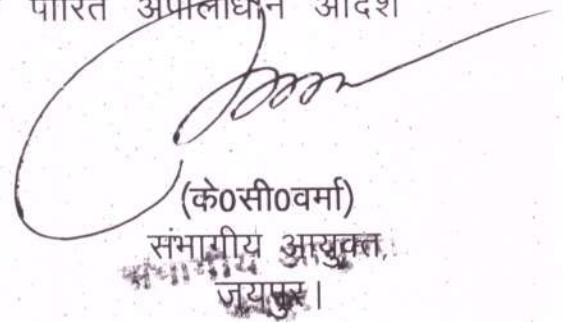 पारित अपीलाधीन आदेश
(के0सी0वर्मा)
संभागीय आयुक्त,
जयपुर।